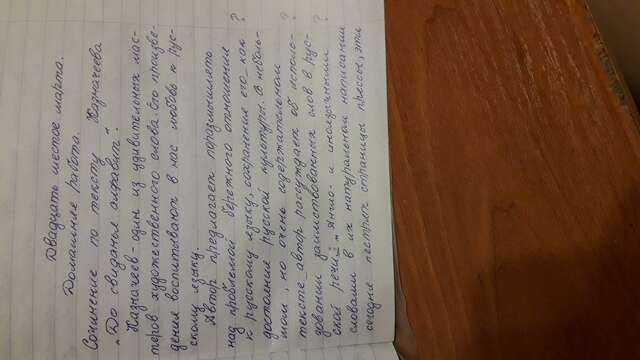 Двадцать шестое марта.
Домашнее работа.
Сочинение по тексту Казначеева
"До свиданья алфавит".
Казначеев - один из удивительных мас-
теров художественного слова. Его произве-
дения воспитывают в нас любовь к рус-
скому языку.
Автор предлагает поразмышлять
над проблемой бережного отношения ?
к русскому языку, сохранение его как
достояние русской культуры. В неболь-
шом, но очень содержательном ?
тексте автор рассуждает об исполь-
зовании заимствованных слов в рус- ?
ской речи: "Англо- и иноязычными
словами в их натуральном написании
сегодня пестрят страницы прессы, эти